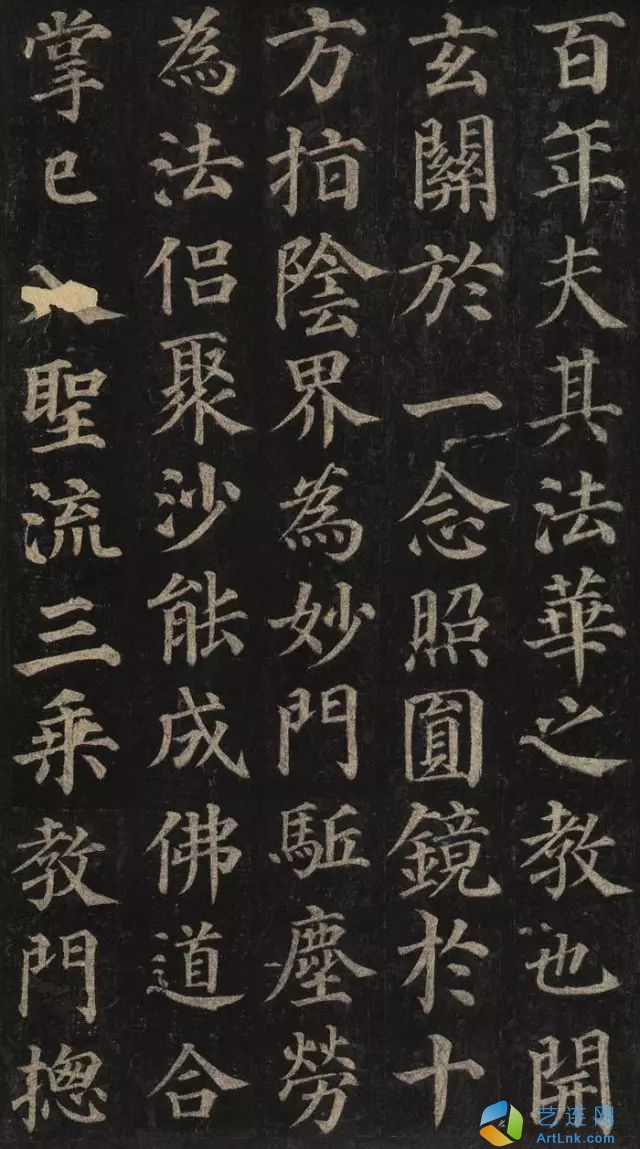 百年夫其法華之教也開
玄關於一念照圓鏡於十
方指陰界為妙門駈塵勞
為法侣聚沙能成佛道合
掌已入聖流三乘教門揔
艺连网
ArtLnk.com